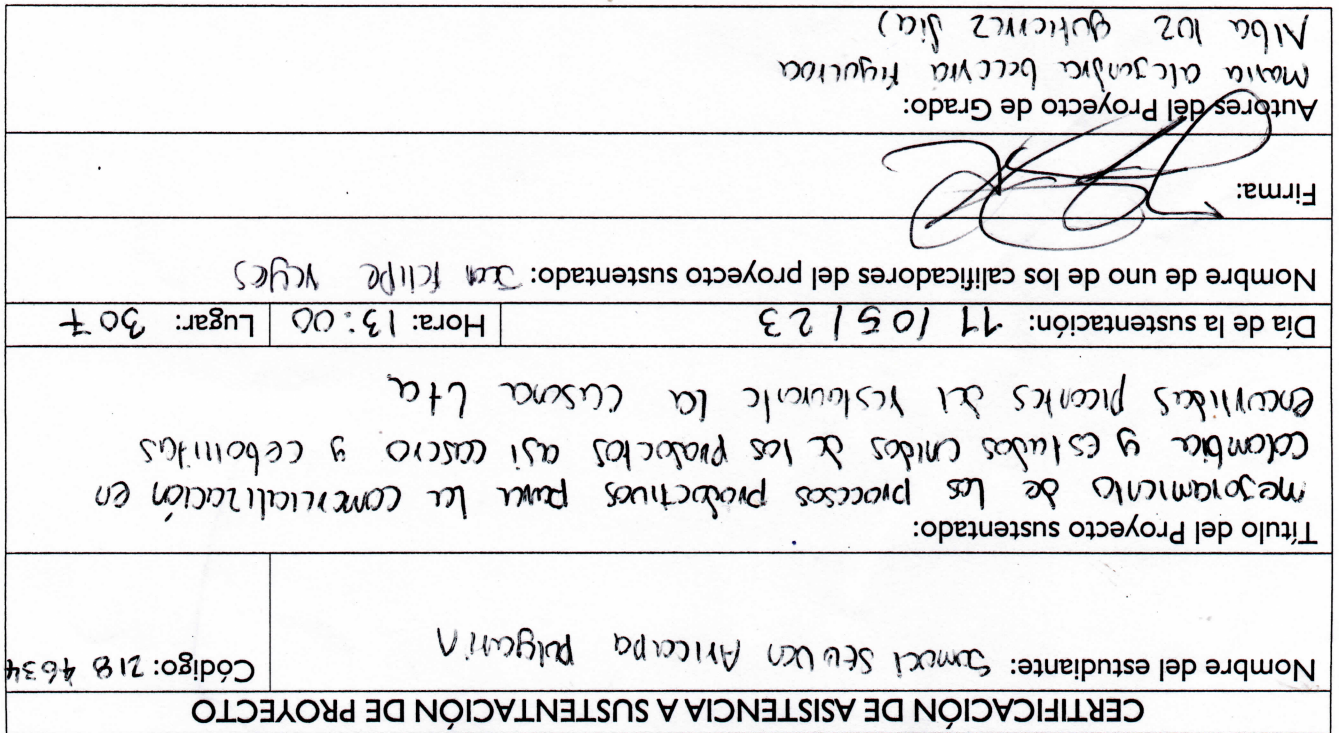 CERTIFICACIÓN DE ASISTENCIA A SUSTENTACIÓN DE PROYECTO
Nombre del estudiante: Samuel Steven Aricapa Pulgarin
Código: 218 4634
Título del Proyecto sustentado:
mejoramiento de los procesos productivos para la comercialización en
colombia y estados unidos de los productos asi casero y cebollitas
encurtidas picantes del restaurante la casona Lta
Día de la sustentación: 11 / 05 / 23 Hora: 13:00 Lugar: 307
Nombre de uno de los calificadores del proyecto sustentado: Juan felipe reyes
Firma:
Autores del Proyecto de Grado:
Maria alejandra becerra figueroa
Alba luz gutierrez